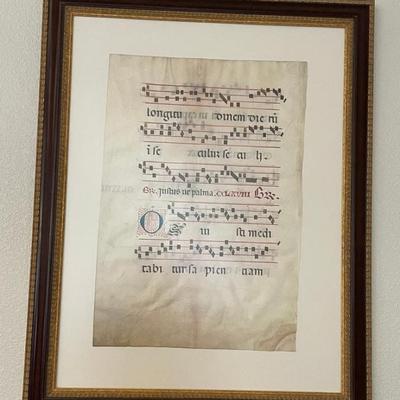 longitu dinem die rũ
ĩ se culũ se cu li
Gr. Justus ut palma. Gr.
O iu sti medi
tabi tur sa pien tiam